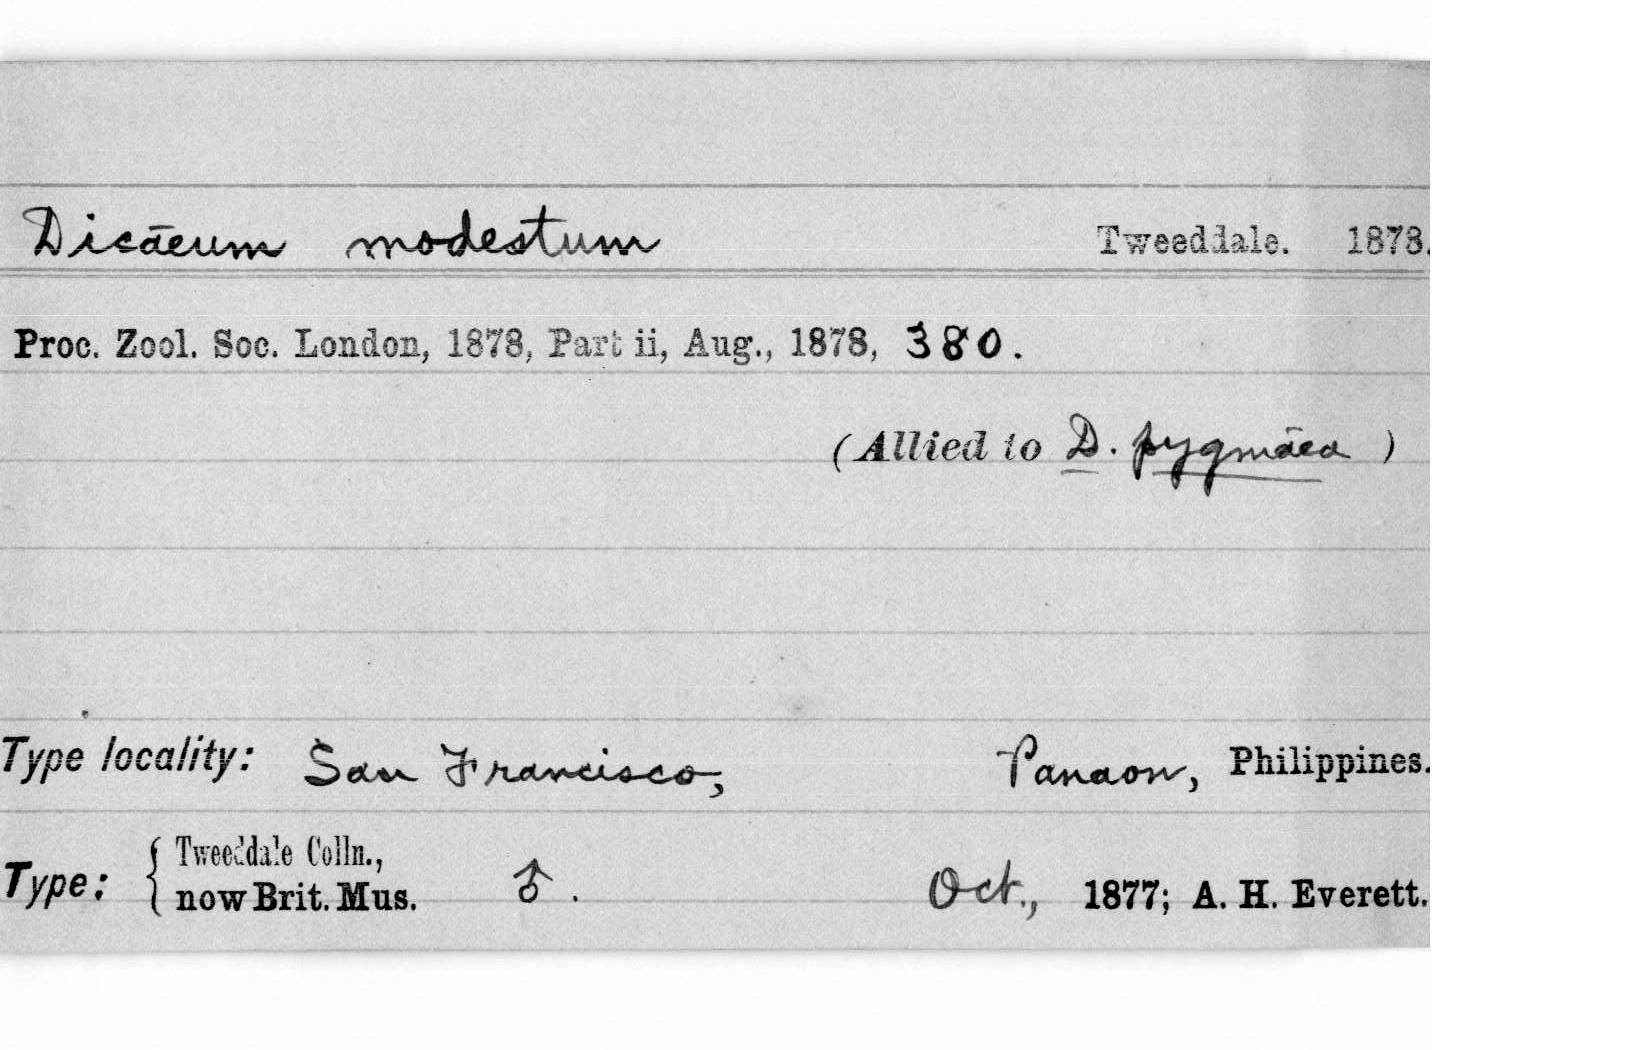 Dicāeum modestum Tweeddale. 1878.
Proc. Zool. Soc. London, 1878, Part ii, Aug., 1878, 380.
(Allied to D. pygmāea )
Type locality: San Francisco, Panaon, Philippines.
Type: { Tweeddale Colln.,
now Brit. Mus. ♂. Oct., 1877; A. H. Everett.